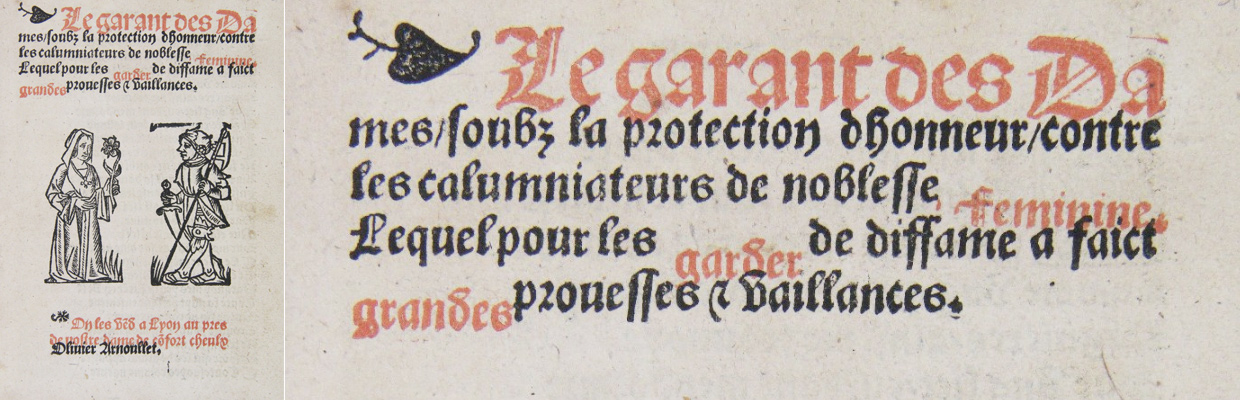 Le garant des Da
mes/soubz la protection dhonneur/contre
les calumniateurs de noblesse feminine.
Lequel pour les garder de diffame a faict
grandes prouesses ⁊ vaillances.
On les vẽd a Lyon au pres
de nostre dame de cõfort cheulx
Oliuier Arnoullet.
Le garant des Da
mes/soubz la protection dhonneur/contre
les calumniateurs de noblesse feminine.
Lequel pour les garder de diffame a faict
grandes prouesses ⁊ vaillances.